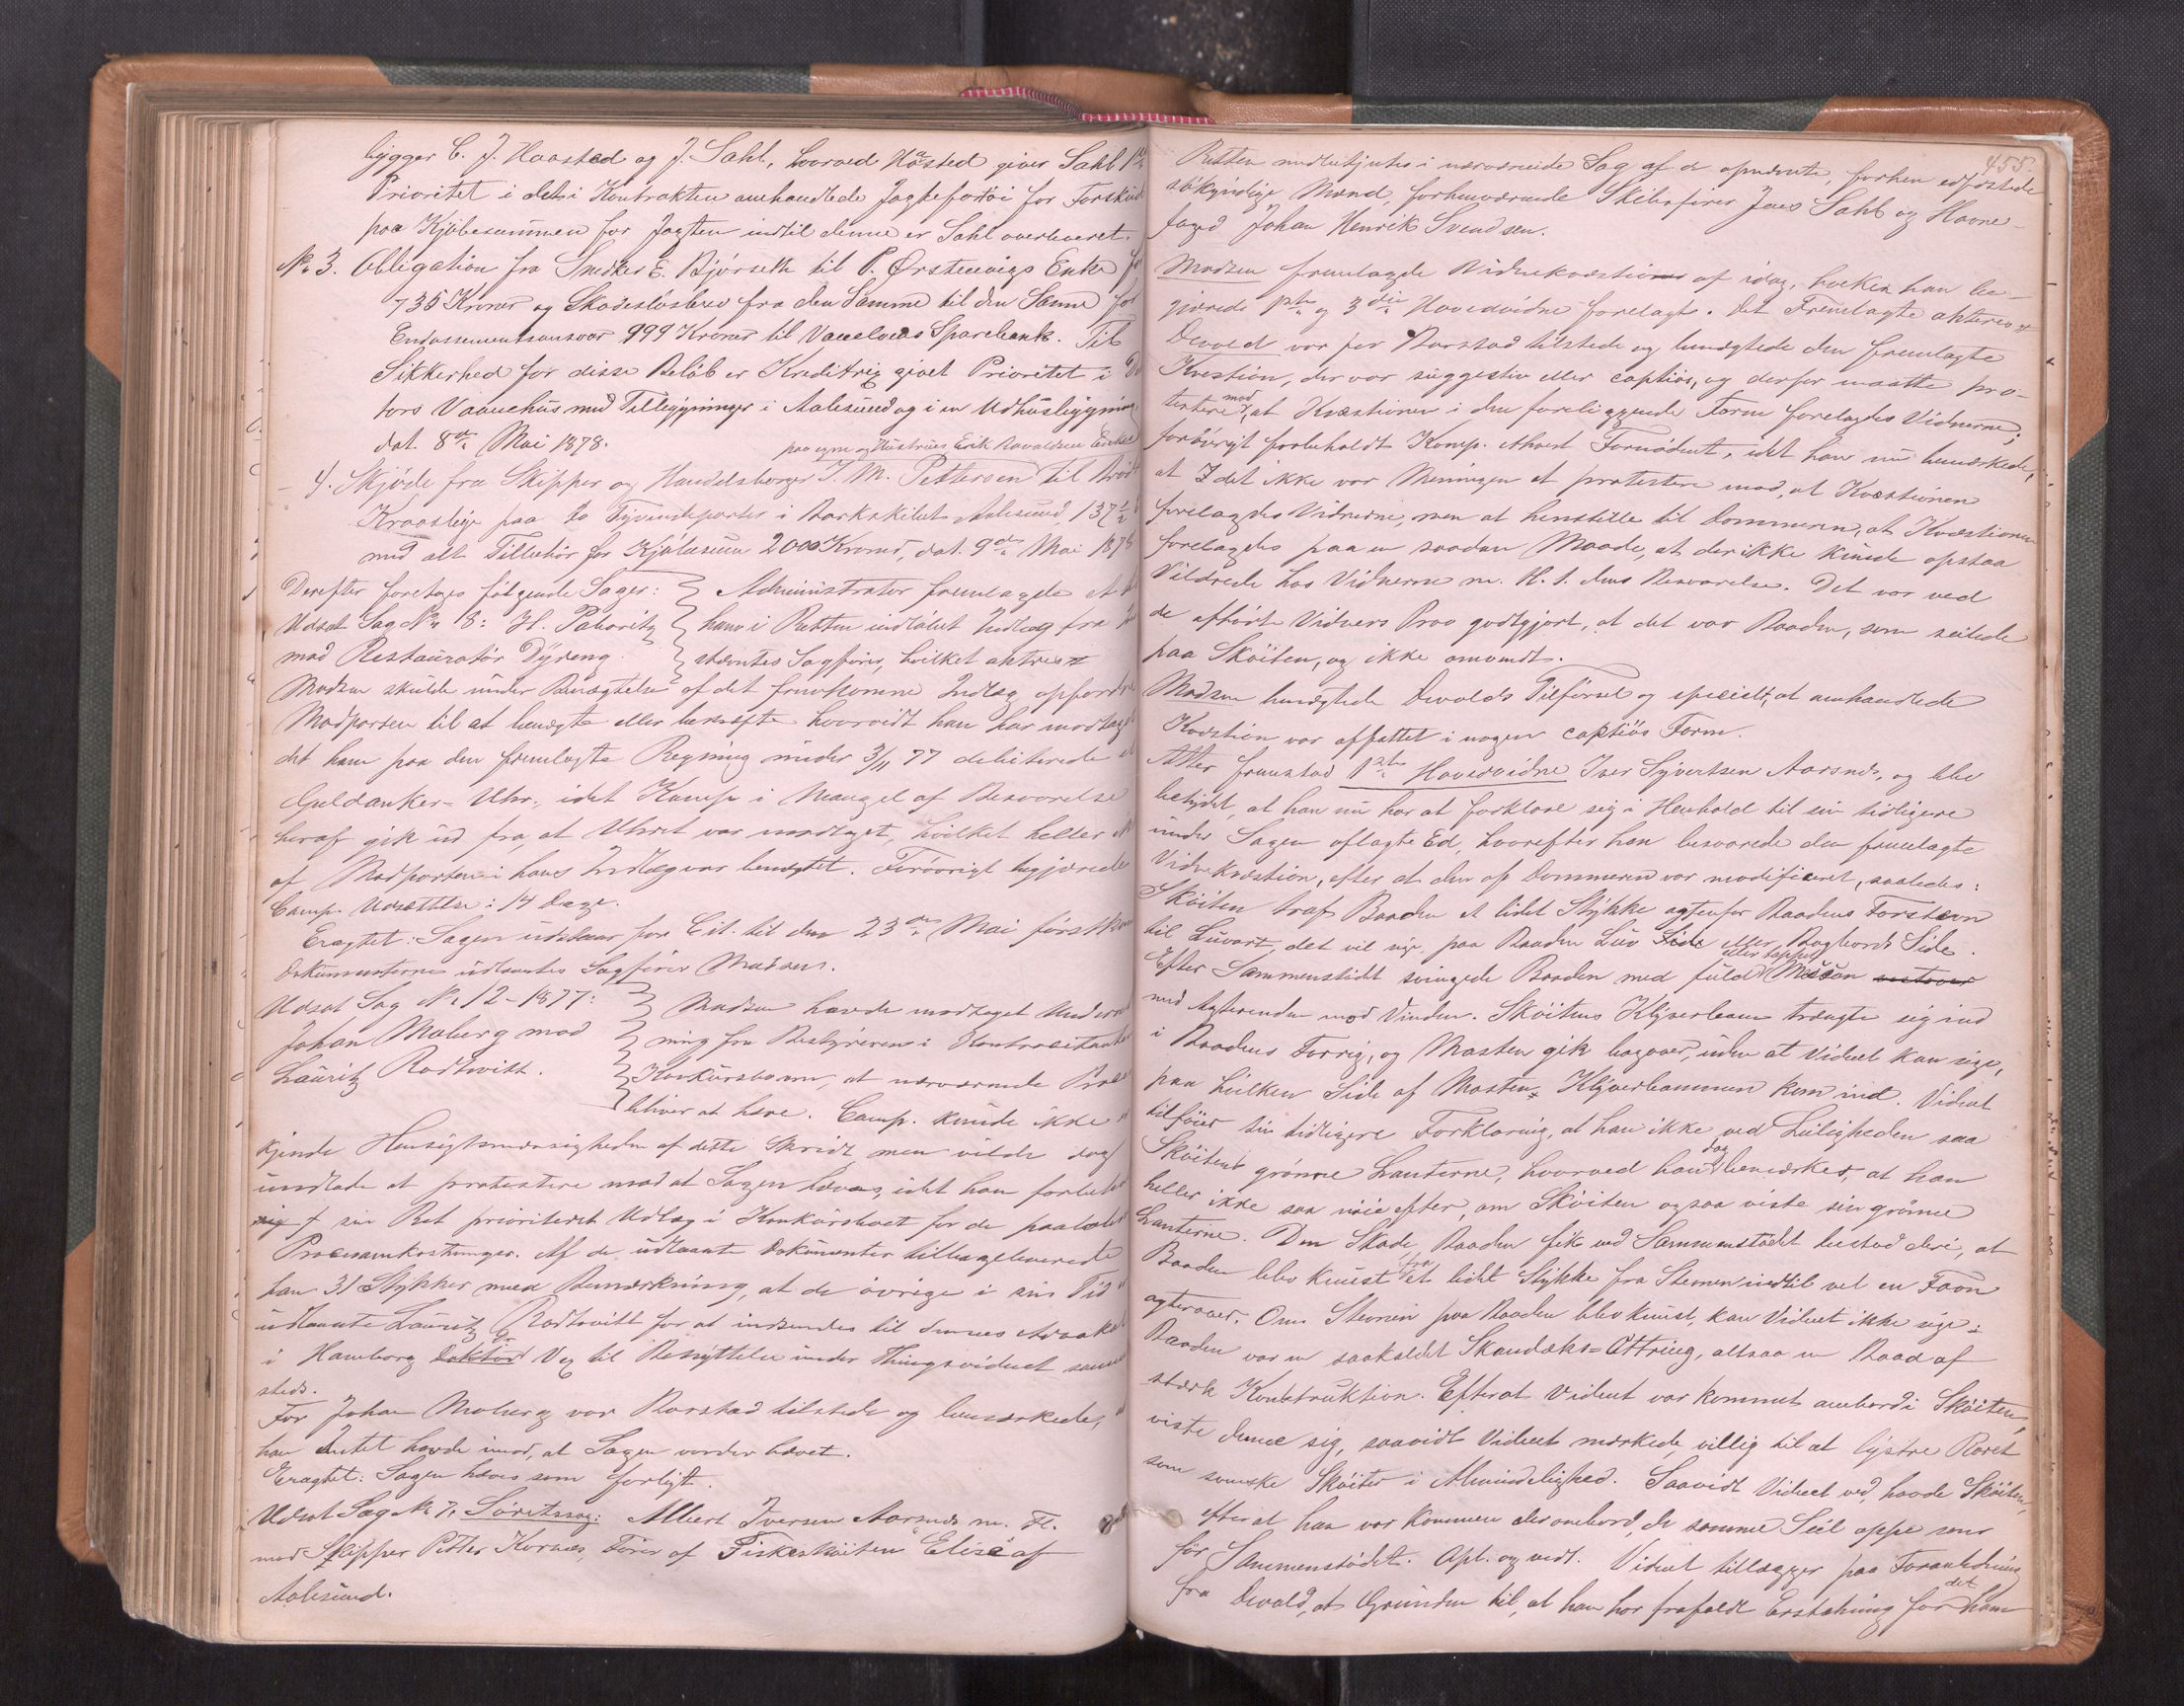 bygger C. J. Haasted og J. Sahl, hvorved Haasted giver Sahl 1ste
Prioritet i det i Kontrakten omhandlede Jagtefartøi for Forskud
paa Kjøbesummen for Jagten indtil denne er Sahl overleveret.
No 3. Obligation fra Snedker E. Bjørseth til P. Ørstenvigs Enke for
735 Kroner og Skadesløsbrev fra den Samme til den Samme for
Endossementsansvar 999 Kroner til Vanelvens Sparebank. Til
Sikkerhed for disse Beløb er Kreditrix givet Prioritet i De
tors Vaanehus med Tillegsninger i Aalesund og i en Udhusbygning
dat. 8de Mai 1878.
paa egne og Hustrues Erik Davaldsen Enke
4. Skjøde fra Skipper og Handelsborger J. M. Pettersen til Brødr
Kraaslige paa 20 Tyvendeparter i Barkskibet Aalesund, 137½
med alt Tilbehør for Kjøbesum 2000 Kroner, dat. 9de Mai 1878
Derefter foretoges følgende Sager:
Udsat Sag No 18: H. Paboritz
mod Restauratør Dyreng.
Administrator fremlagde et
ham i Retten indløbet Indlæg fra
stævntes Sagfører, hvilket akteres
Madsen skulde under Benægtelse af det fremkomne Indlæg opfordre
Modparten til at benægte eller bekræfte hvorvidt han har modtaget
det ham paa den fremlagte Regning under 3/11 77 debiterede
Guldanker-Uhr, idet Komp. i Mangel af Besvarelse
heraf gik ud fra, at Uhret var modtaget, hvilket heller
af Modparten i hans Indlæg var benægtet. Forøvrigt begjærede
Comp. Udsættelse: 14 Dage.
Eragtet: Sagen udstaar for Cit. til den 23de Mai førstk
Dokumenterne udlaantes Sagfører Madsen.
Udsat Sag No 12-1877:
Johan Moberg mod
Lauritz Rodtwitt.
Madsen havde modtaget Underret
ning fra Bestyreren i Kontracitantens
Konkursbo om, at nærværende Proces
bliver at hæve. Comp. kunde ikke
kjende Hensigtsmæssigheden af dette Skridt, men vilde dog
undlade at protestere mod at Sagen hæves, idet han forbeholdt
sig sin Ret prioriteret Udlæg i Konkursboet for de paaløbne
Procesomkostninger. Af de udlaante Dokumenter tilbageleverede
han 31 Stykker med Bemærkning, at de øvrige i sin Tid
udlaante Lauritz Rodtwitt for at indsendes til dennes Advokat
i Hamborg Doktor Dr Vex til Benyttelse under Thingsvidnet samme
steds.
For Johan Moberg var Barstad tilstede og bemærkede,
han Intet havde imod, at Sagen vorder hævet.
Eragtet: Sagen hæves som forligt.
Udsat Sag No 7, Søretssag: Albert Iversen Aarsnes m. Fl.
mod Skipper Petter Kornæs, Fører af Fiskeskøiten Elise af
Aalesund.
455.
Retten medbetjentes i nærværende Sag af de opnævnte, forhen edfæstede
søkyndige Mænd, forhenværende Skibsfører Jens Sahl og Havne-
foged Johan Henrik Svendsen.
Madsen fremlagde Vidnekvæstion af idag, hvilken han be-
gjærede 1ste og 3die Hovedvidne forelagt. Det Fremlagte akteres
Devold var for Barstad tilstede og benægtede den fremlagte
Kvæstion, der var suggestiv eller captiøs, og derfor maatte pro-
testere mod, at Kvæstionen i den foreliggende Form forelagdes Vidnerne;
forøvrigt forbeholdt Komp. Alvest Fornødent, idet han nu bemærkede,
at det ikke var Meningen at protestere mod, at Kvæstionen
forelagdes Vidnerne, men at henstille til Dommeren, at Kvæstionen
forelagdes paa en saadan Maade, at der ikke kunde opstaa
Vildrede hos Vidnerne m. H. t. dens Besvarelse. Det var ved
de afhørte Vidners Prov godtgjort, at det var Baaden, som seilede
paa Skøiten, og ikke omvendt.
Madsen benægtede Devolds Tilførsel og specielt, at omhandlede
Kvæstion var affattet i nogen captiøs Form.
Atter fremstod 1ste Hovedvidne Iver Syvertsen Aarsnes, og blev
betydet, at han nu har at forklare sig i Henhold til sin tidligere
under Sagen aflagte Ed, hvorefter han besvarede den fremlagte
Vidnekvæstion, efter at den af Dommeren var modificeret, saaledes:
Skøiten traf Baaden et lidet Stykke agtenfor Baadens Forstevn
til Luvart, det vil sige, paa Baaden Luv Side eller Bagbords Side.
Efter Sammenstødet svingede Baaden med fuld eller lappet Mesan
med Agterenden mod Vinden. Skøitens Klyverbom trængte sig ind
i Baadens Forrig, og Masten gik bagover, uden at Vidnet kan sige,
paa hvilken Side af Masten Klyverbommen kom ind. Vidnet
tilføier sin tidligere Forklaring, at han ikke ved Leiligheden saa
Skøitens grønne Lanterne, hvorved han dog bemærker, at han
heller ikke saa nøie efter, om Skøiten ogsaa viste sin grønne
Lanterne. Den Skade, Baaden fik ved Sammenstødet bestod deri, at
Baaden blev knust fra et lidet Stykke fra Stevnen indtil vel en Favn
agterover. Om Stevnen paa Baaden blev knust, kan Vidnet ikke sige.
Baaden var en saakaldet Skandæks-Ottring, altsaa en Baad af
stærk Konstruktion. Efter at Vidnet var kommet ombord i Skøiten,
viste denne sig, saavidt Vidnet mærkede, villig til at lystre Roret
som svenske Skøiter i Almindelighed. Saavidt Vidnet ved, havde Skøiten,
efter at han var kommen der ombord, de samme Seil oppe som
før Sammenstødet. Opl. og vedt. Vidnet tillægger paa Foranledning
fra Devold, at Grunden til, at han har frafaldt Erstatning for det ham